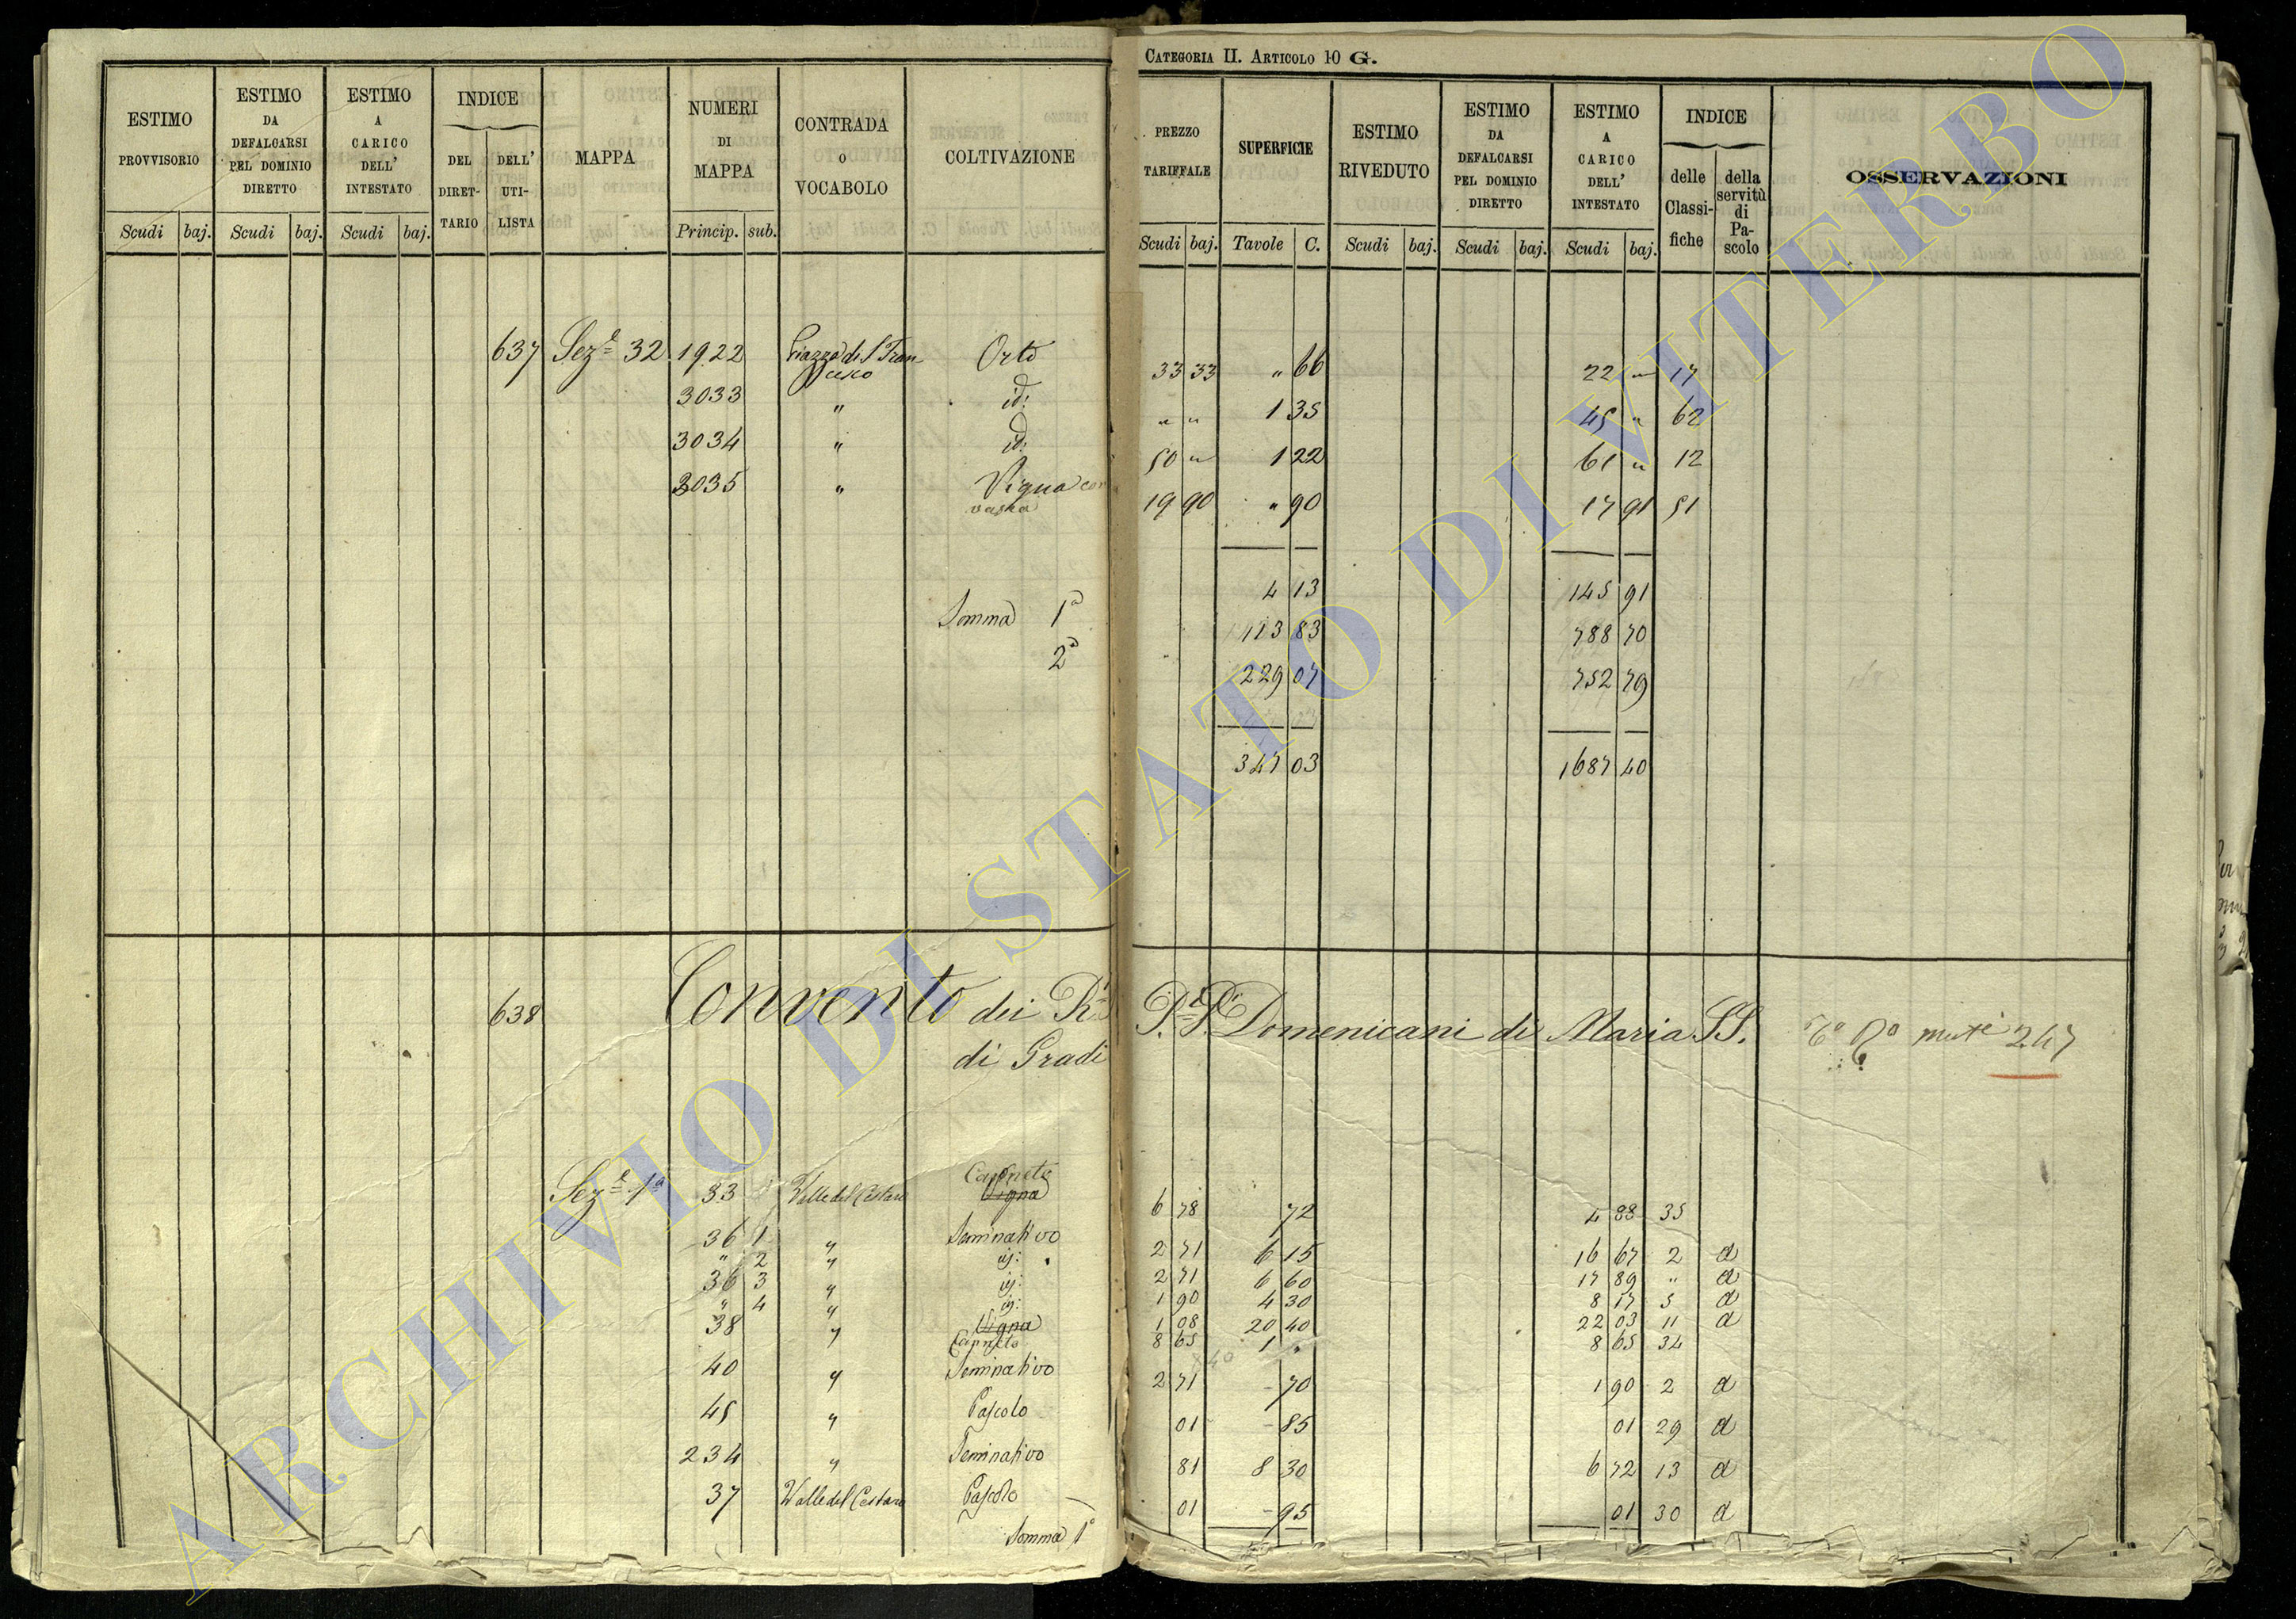 CATEGORIA II. ARTICOLO 10 G.
ESTIMO PROVVISORIO
ESTIMO DA DEFALCARSI PEL DOMINIO DIRETTO
ESTIMO A CARICO DELL' INTESTATO
INDICE
DEL DIRETTARIO
DELL' UTILISTA
MAPPA
NUMERI DI MAPPA
CONTRADA O VOCABOLO
COLTIVAZIONE
PREZZO TARIFFALE
SUPERFICIE
ESTIMO RIVEDUTO
ESTIMO DA DEFALCARSI PEL DOMINIO DIRETTO
ESTIMO A CARICO DELL' INTESTATO
INDICE
delle Classifiche
della servitù di Pascolo
OSSERVAZIONI
Scudi baj. Scudi baj. Scudi baj. Princip. sub. Scudi baj. Tavole C. Scudi baj. Scudi baj. Scudi baj.
637 Sez.e 32 1922 Piazza di S. Francesco Orto 33 33 " 66 22 " 17
3033 " id: " " 1 35 45 " 62
3034 " id: 50 " 1 22 61 " 12
3035 " Vigna con vasca 19 90 " 90 17 91 51
4 13 145 91
Somma 1a 113 83 788 70
2a 229 07 752 79
347 03 1687 40
638 Convento dei R.R. P.P. Domenicani di Maria SS. 247
di Gradi
Sez.e 1a 33 Valle del Cestaro Vigna Canneto 6 78 72 4 88 35
36 1 " Seminativo 2 71 6 15 16 67 2 a
" 2 " id: 2 71 6 60 17 89 " a
36 3 " id: 1 90 4 30 8 17 5 a
" 4 " id: 1 08 20 40 22 03 11 a
38 " Vigna Canneto 8 65 1 " 8 65 34
40 " Seminativo 2 71 - 70 1 90 2 a
45 " Pascolo 01 - 85 01 29 a
234 " Seminativo 81 8 30 6 72 13 a
37 Valle del Cestaro Pascolo 01 - 95 01 30 a
Somma 1a
ARCHIVIO DI STATO DI VITERBO